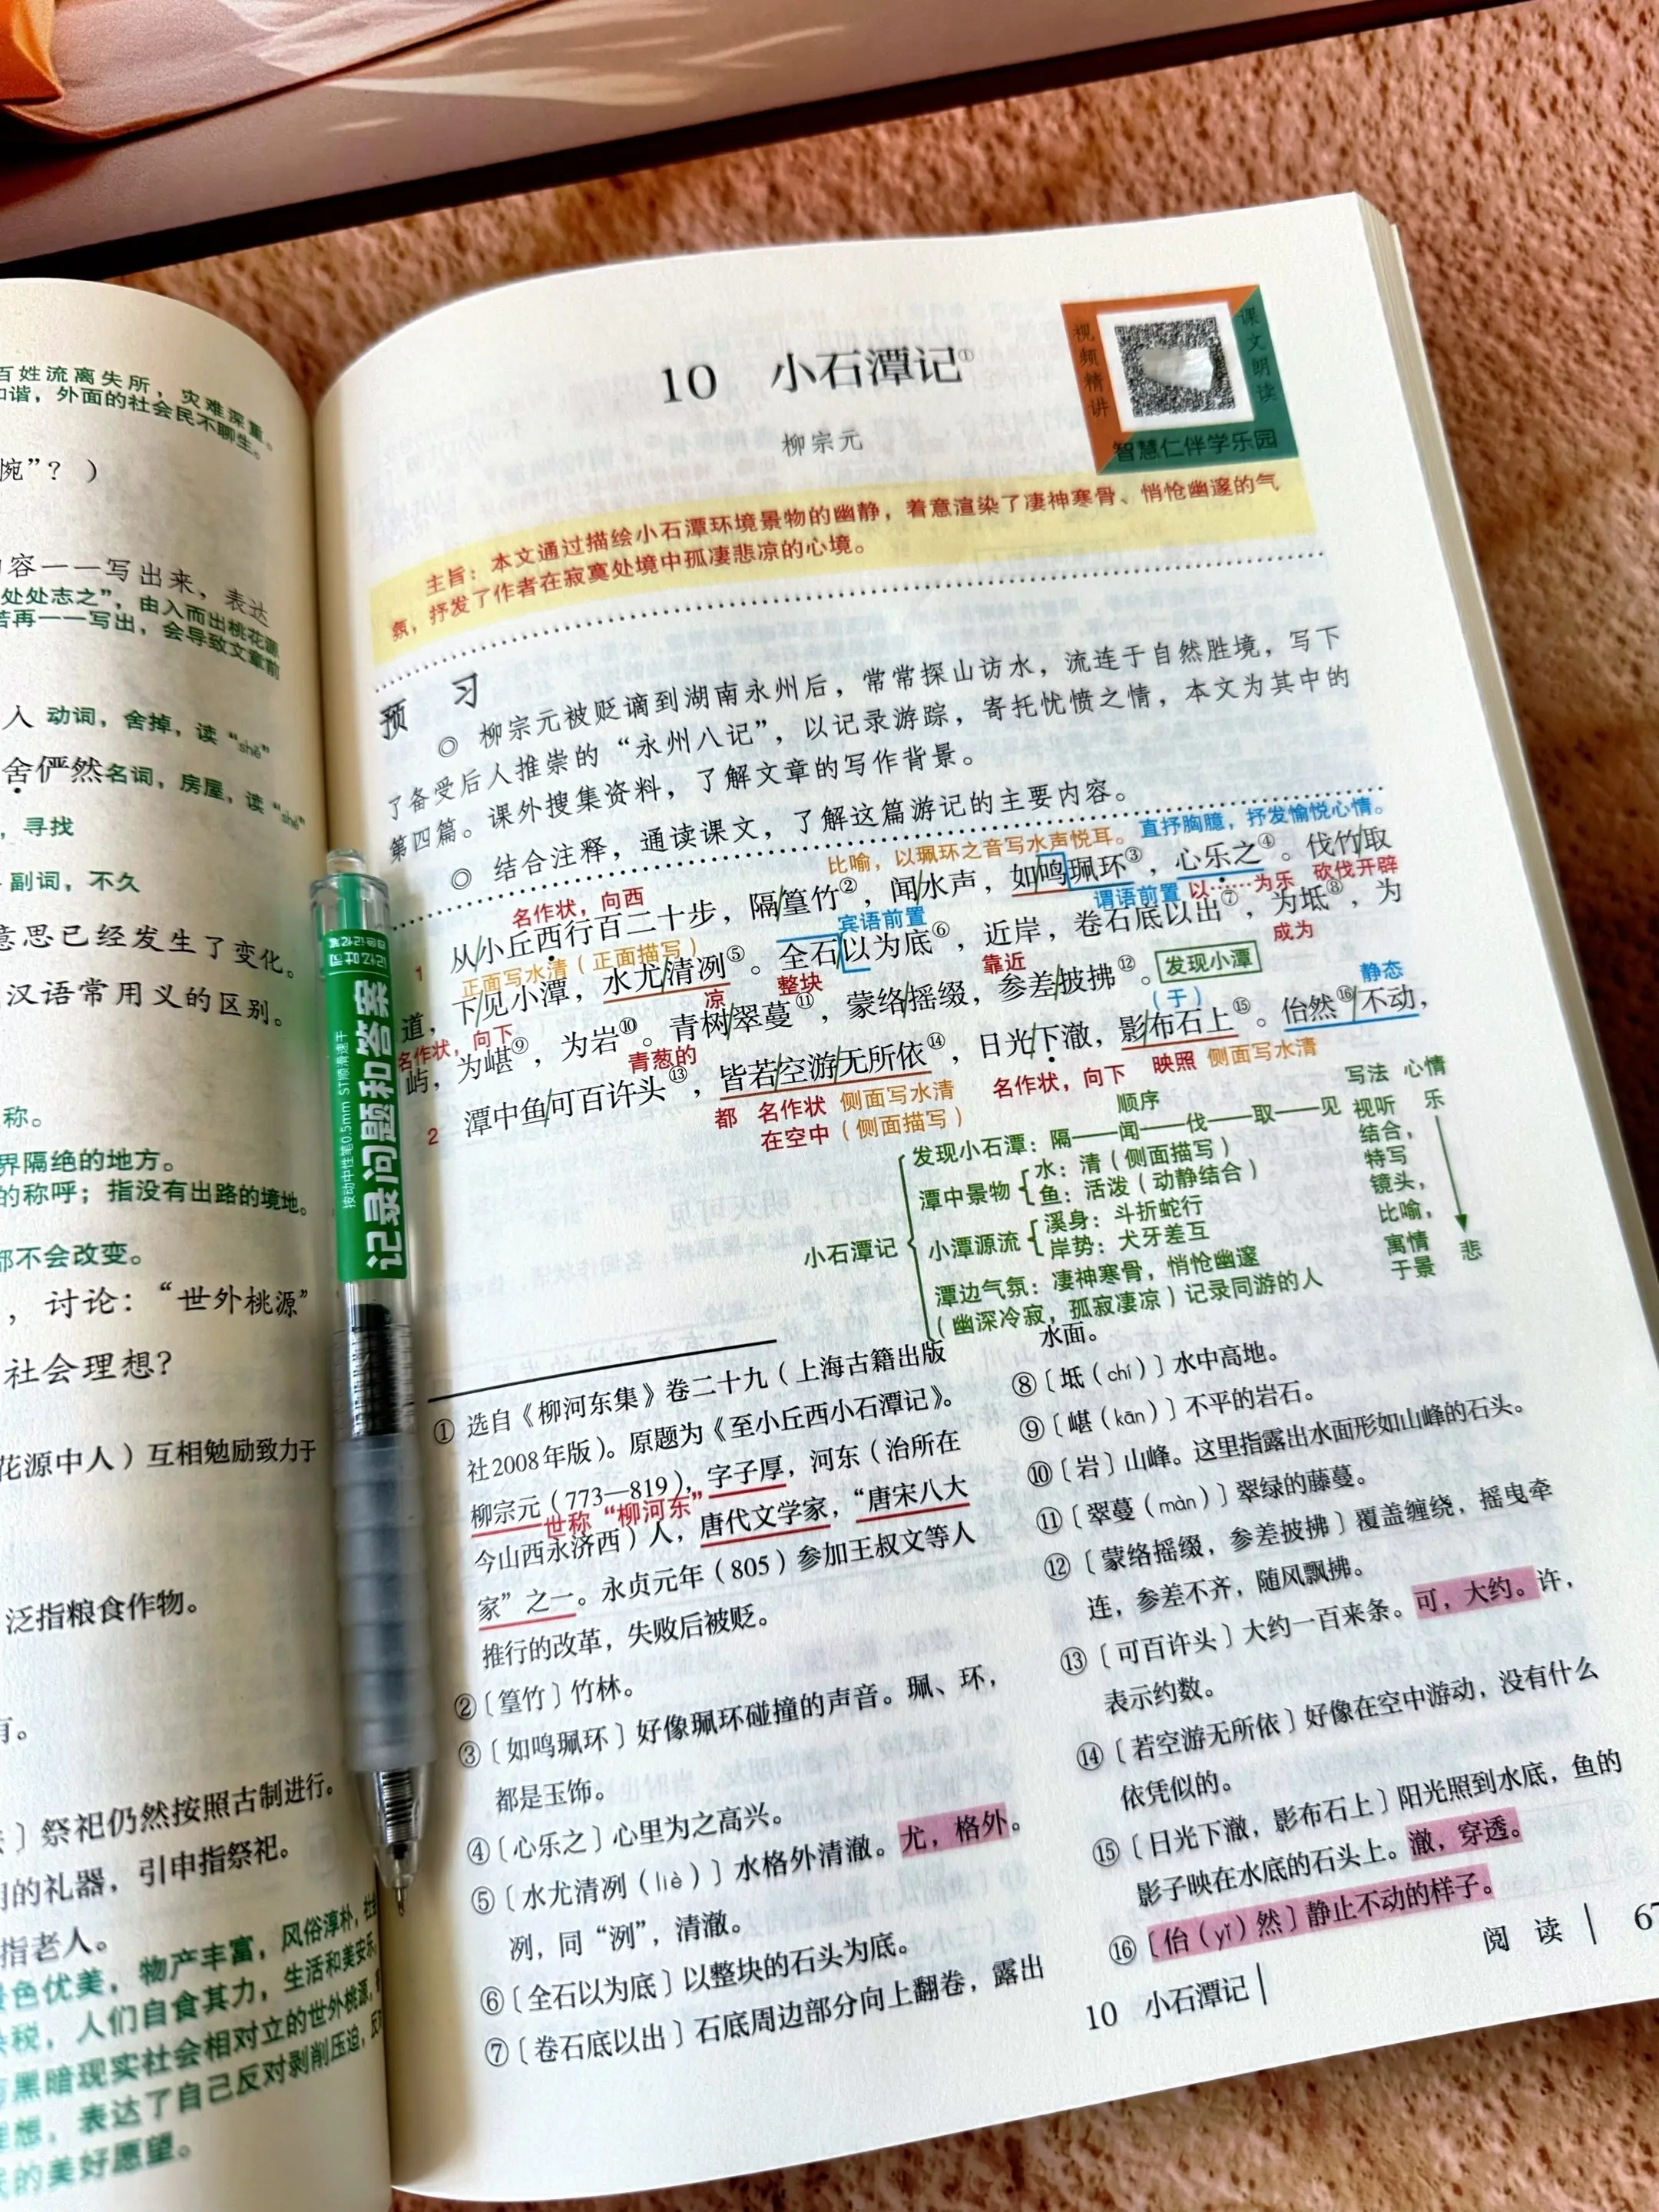 百姓流离失所，灾难深重。
和谐，外面的社会民不聊生。
惋”？）
容一一写出来，表达
处处志之”，由入而出桃花源
若再一一写出，会导致文章前
人 动词，舍掉，读“shě”
舍俨然 名词，房屋，读“shè”
，寻找
副词，不久
意思已经发生了变化。
汉语常用义的区别。
称。
界隔绝的地方。
的称呼；指没有出路的境地。
都不会改变。
，讨论：“世外桃源”
社会理想？
花源中人）互相勉励致力于
泛指粮食作物。
有。
〕祭祀仍然按照古制进行。
用的礼器，引申指祭祀。
指老人。
景色优美，物产丰富，风俗淳朴，社
税，人们自食其力，生活和美安乐，
黑暗现实社会相对立的世外桃源，
理想，表达了自己反对剥削压迫，反
的美好愿望。
记录问题和答案
按动中性笔0.5mm ST顺滑速干
10 小石潭记①
柳宗元
视频精讲
课文朗读
智慧仁伴学乐园
主旨：本文通过描绘小石潭环境景物的幽静，着意渲染了凄神寒骨、悄怆幽邃的气
氛，抒发了作者在寂寞处境中孤凄悲凉的心境。
预 习
◎ 柳宗元被贬谪到湖南永州后，常常探山访水，流连于自然胜境，写下
了备受后人推崇的“永州八记”，以记录游踪，寄托忧愤之情，本文为其中的
第四篇。课外搜集资料，了解文章的写作背景。
◎ 结合注释，通读课文，了解这篇游记的主要内容。
比喻，以珮环之音写水声悦耳。 直抒胸臆，抒发愉悦心情。
1 从/小丘西行百二十步，隔/篁竹②，闻/水声，如/鸣珮环③，心乐之④。伐竹/取
名作状，向西 宾语前置 谓语前置 以……为乐 砍伐开辟
道，下/见小潭，水尤/清冽⑤。全石/以为底⑥，近岸，卷石底以出⑦，为坻⑧，为
正面写水清（正面描写） 凉 整块 靠近 成为
名作状，向下
屿，为嵁⑨，为岩⑩。青树/翠蔓⑪，蒙络/摇缀，参差/披拂⑫。 发现小潭
青葱的 （于） 静态
2 潭中鱼/可百许头⑬，皆若/空游/无所依⑭，日光/下澈，影/布石上⑮。佁然⑯/不动，
都 名作状 侧面写水清 名作状，向下 映照 侧面写水清
在空中（侧面描写）
顺序 写法 心情
小石潭记
发现小石潭：隔——闻——伐——取——见
潭中景物
水：清（侧面描写）
鱼：活泼（动静结合）
小潭源流
溪身：斗折蛇行
岸势：犬牙差互
潭边气氛：凄神寒骨，悄怆幽邃
（幽深冷寂，孤寂凄凉）记录同游的人
视听
结合，
特写
镜头，
比喻，
寓情
于景
乐
悲
① 选自《柳河东集》卷二十九（上海古籍出版
社2008年版）。原题为《至小丘西小石潭记》。
柳宗元（773—819），字子厚，河东（治所在
世称“柳河东”
今山西永济西）人，唐代文学家，“唐宋八大
家”之一。永贞元年（805）参加王叔文等人
推行的改革，失败后被贬。
②〔篁竹〕竹林。
③〔如鸣珮环〕好像珮环碰撞的声音。珮、环，
都是玉饰。
④〔心乐之〕心里为之高兴。
⑤〔水尤清冽（liè）〕水格外清澈。尤，格外。
冽，同“洌”，清澈。
⑥〔全石以为底〕以整块的石头为底。
⑦〔卷石底以出〕石底周边部分向上翻卷，露出
水面。
⑧〔坻（chí）〕水中高地。
⑨〔嵁（kān）〕不平的岩石。
⑩〔岩〕山峰。这里指露出水面形如山峰的石头。
⑪〔翠蔓（màn）〕翠绿的藤蔓。
⑫〔蒙络摇缀，参差披拂〕覆盖缠绕，摇曳牵
连，参差不齐，随风飘拂。
⑬〔可百许头〕大约一百来条。可，大约。许，
表示约数。
⑭〔若空游无所依〕好像在空中游动，没有什么
依凭似的。
⑮〔日光下澈，影布石上〕阳光照到水底，鱼的
影子映在水底的石头上。澈，穿透。
⑯〔佁（yǐ）然〕静止不动的样子。
阅 读
10 小石潭记